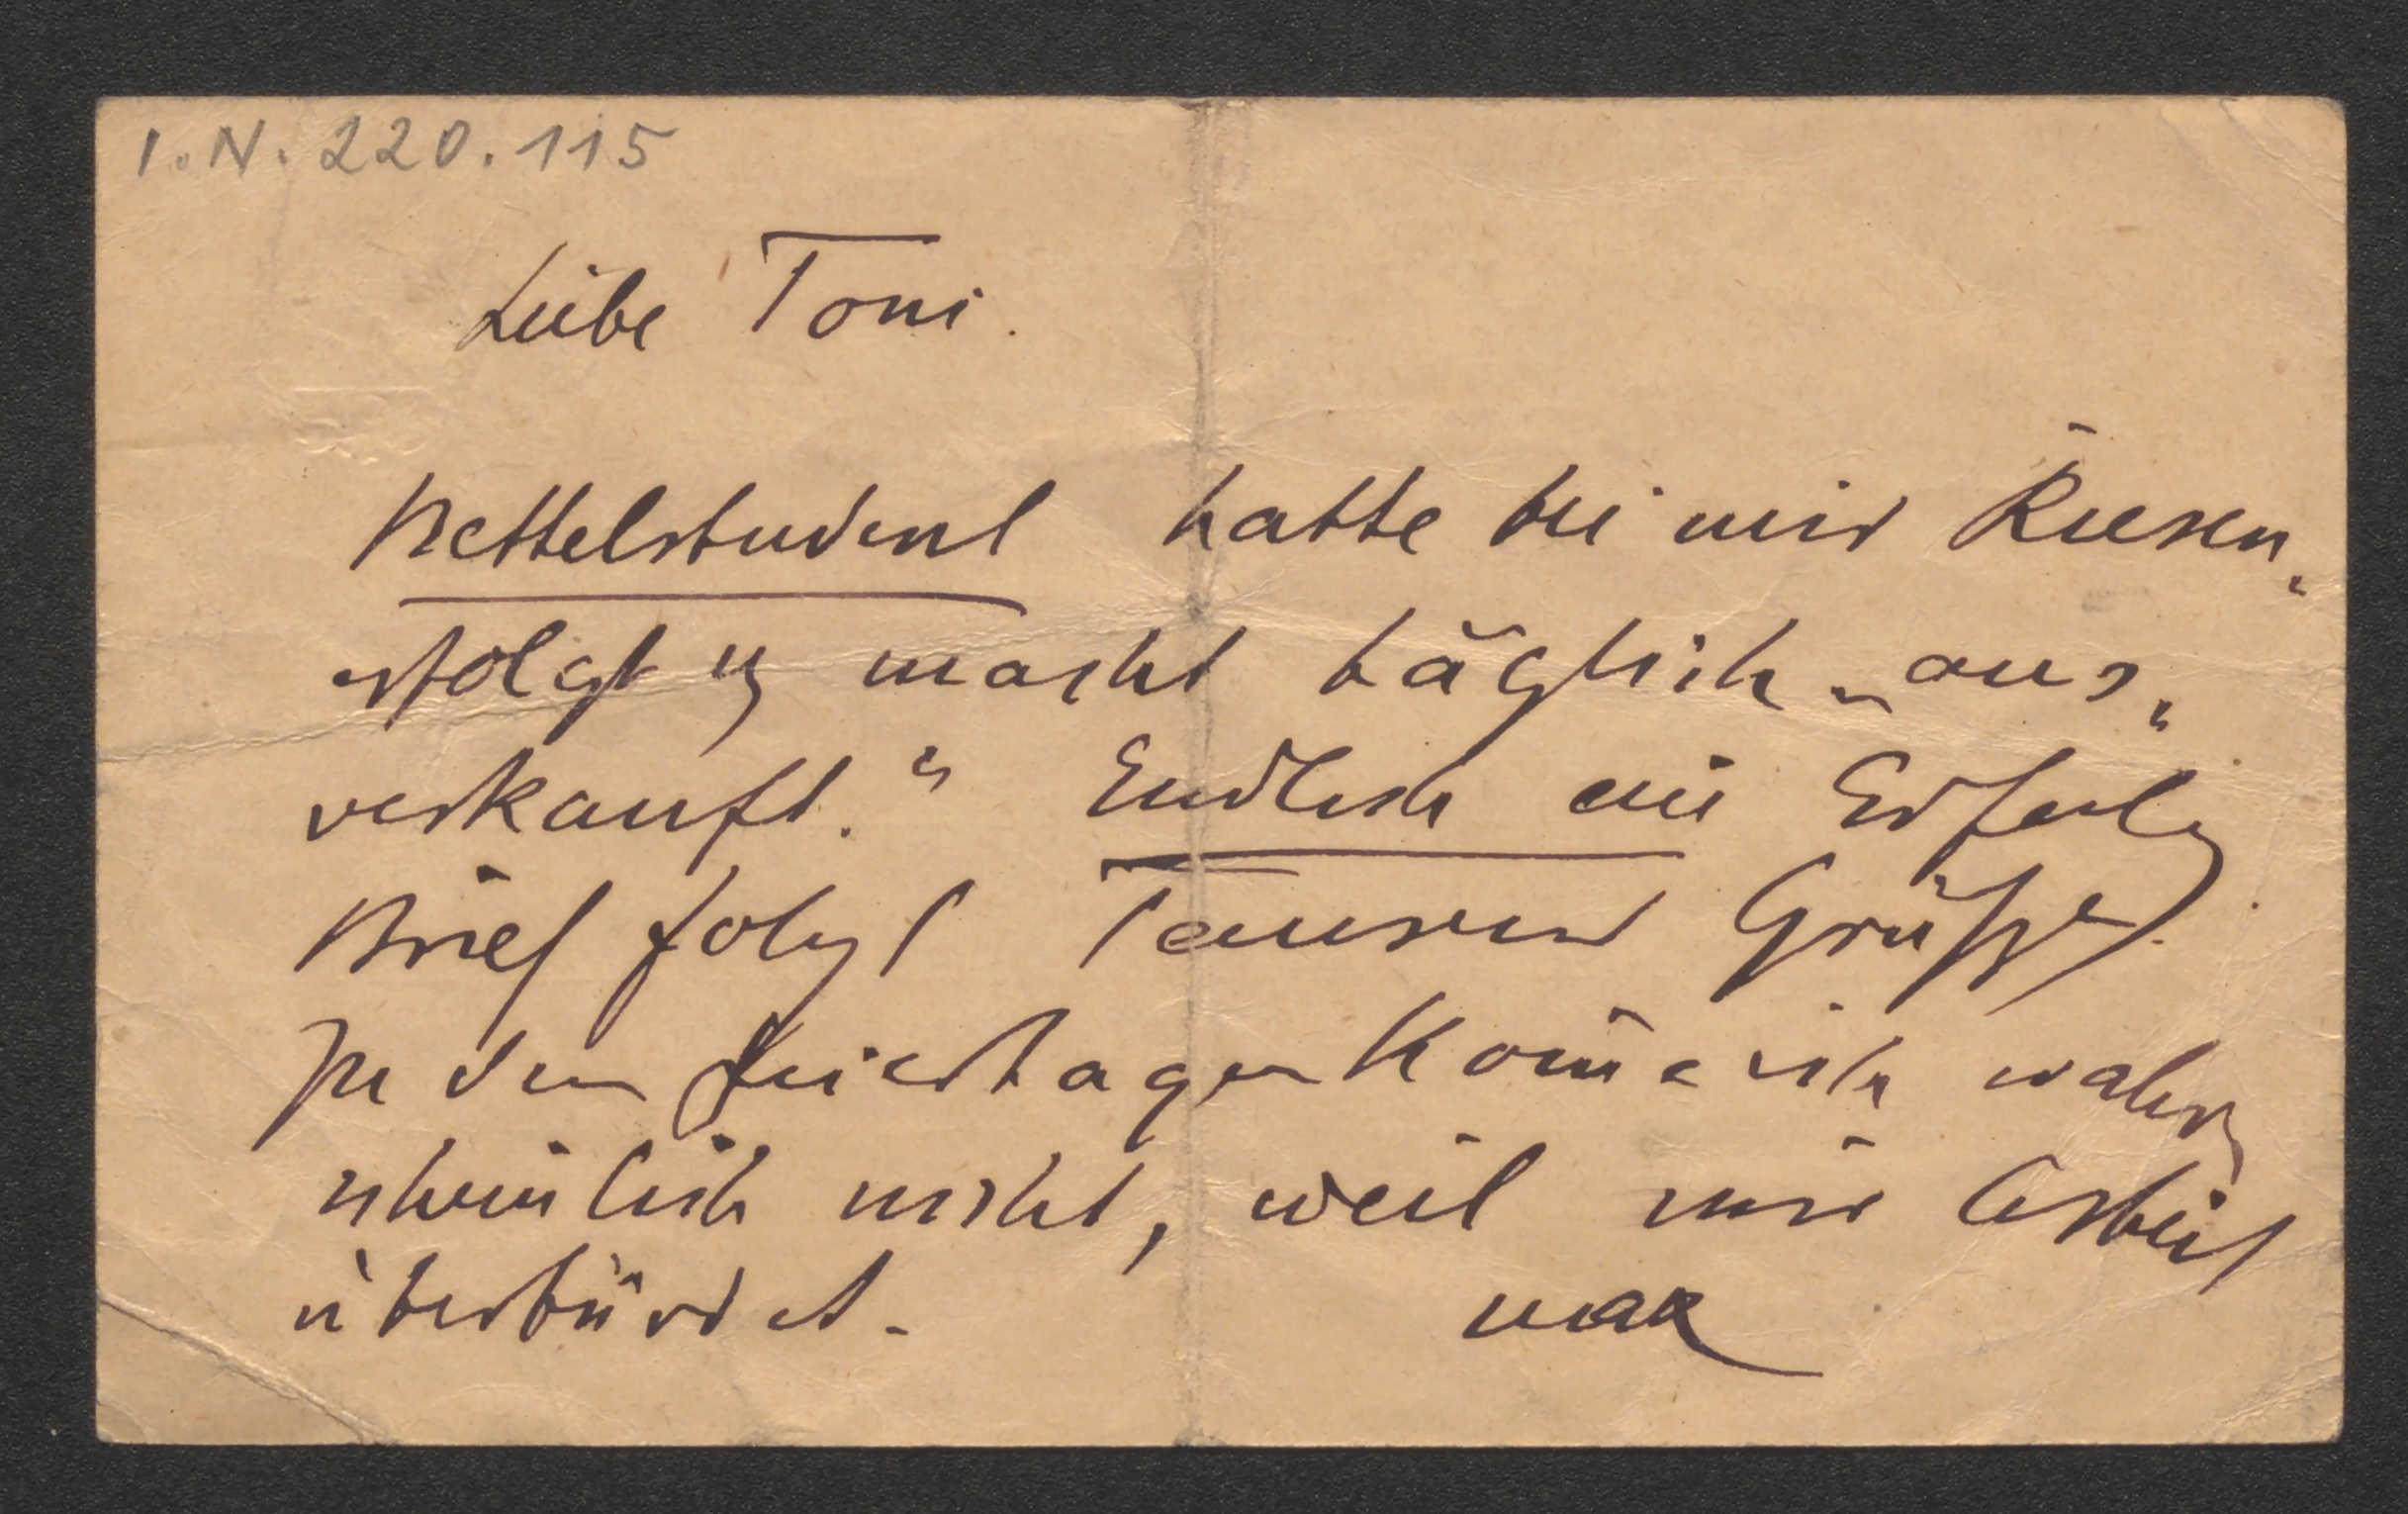 I.N. 220.115
Liebe Toni.
Bettelstudent hatte bei mir Riesen„
erfolg u macht täglich „aus„
verkauft.“ Endlich ein Erfolg
Brief folgt Tausend Grüße.
Zu den Feiertagen kom̅e ich wahr
scheinlich nicht, weil mit Arbeit
überbürdet.
Max